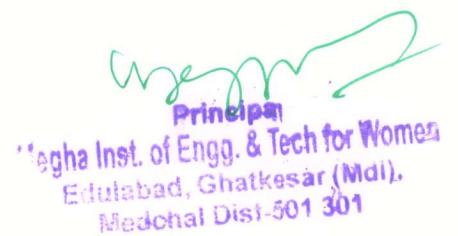 Principal
Megha Inst. of Engg. & Tech for Women
Edulabad, Ghatkesar (Mdl).
Medchal Dist-501 301